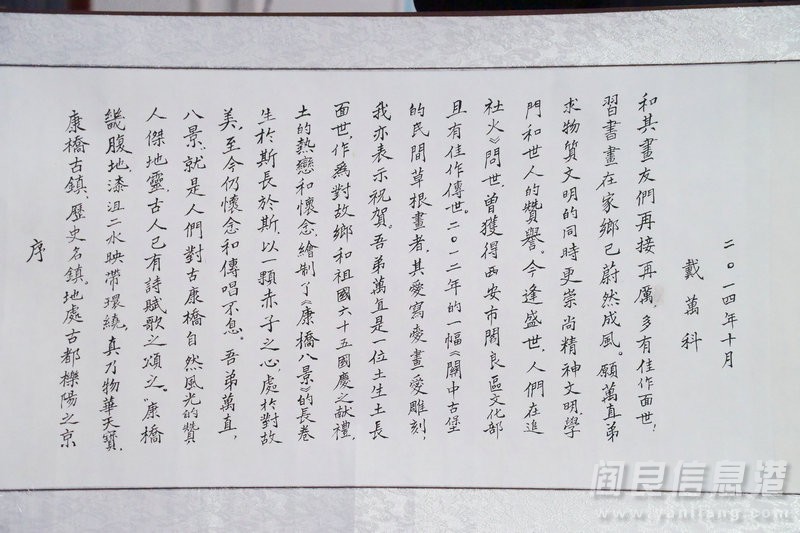 序
康橋古鎮,歷史名鎮。地處古都櫟陽之京
畿腹地,漆沮二水映帶環繞,真乃物華天寶,
人傑地靈,古人已有詩賦歌之頌之。“康橋
八景”,就是人們對古康橋自然風光的贊
美,至今仍懷念和傳唱不息。吾弟萬直,
生於斯長於斯,以一顆赤子之心,處於對故
土的熱戀和懷念,繪制了《康橋八景》的長卷
面世,作爲對故鄉和祖國六十五國慶之献禮,
我亦表示祝賀。吾弟萬直是一位土生土長
的民間草根畫者,其愛寫愛畫愛雕刻,
且有佳作傳世。二〇一二年的一幅《關中古堡
社火》問世,曾獲得西安市閻良區文化部
門和世人的贊譽。今逢盛世,人們在追
求物質文明的同時更崇尚精神文明,學
習書畫在家鄉已蔚然成風。願萬直弟
和其畫友們再接再厲,多有佳作面世!
戴萬科
二〇一四年十月
阎良信息港
www.yanliang.com